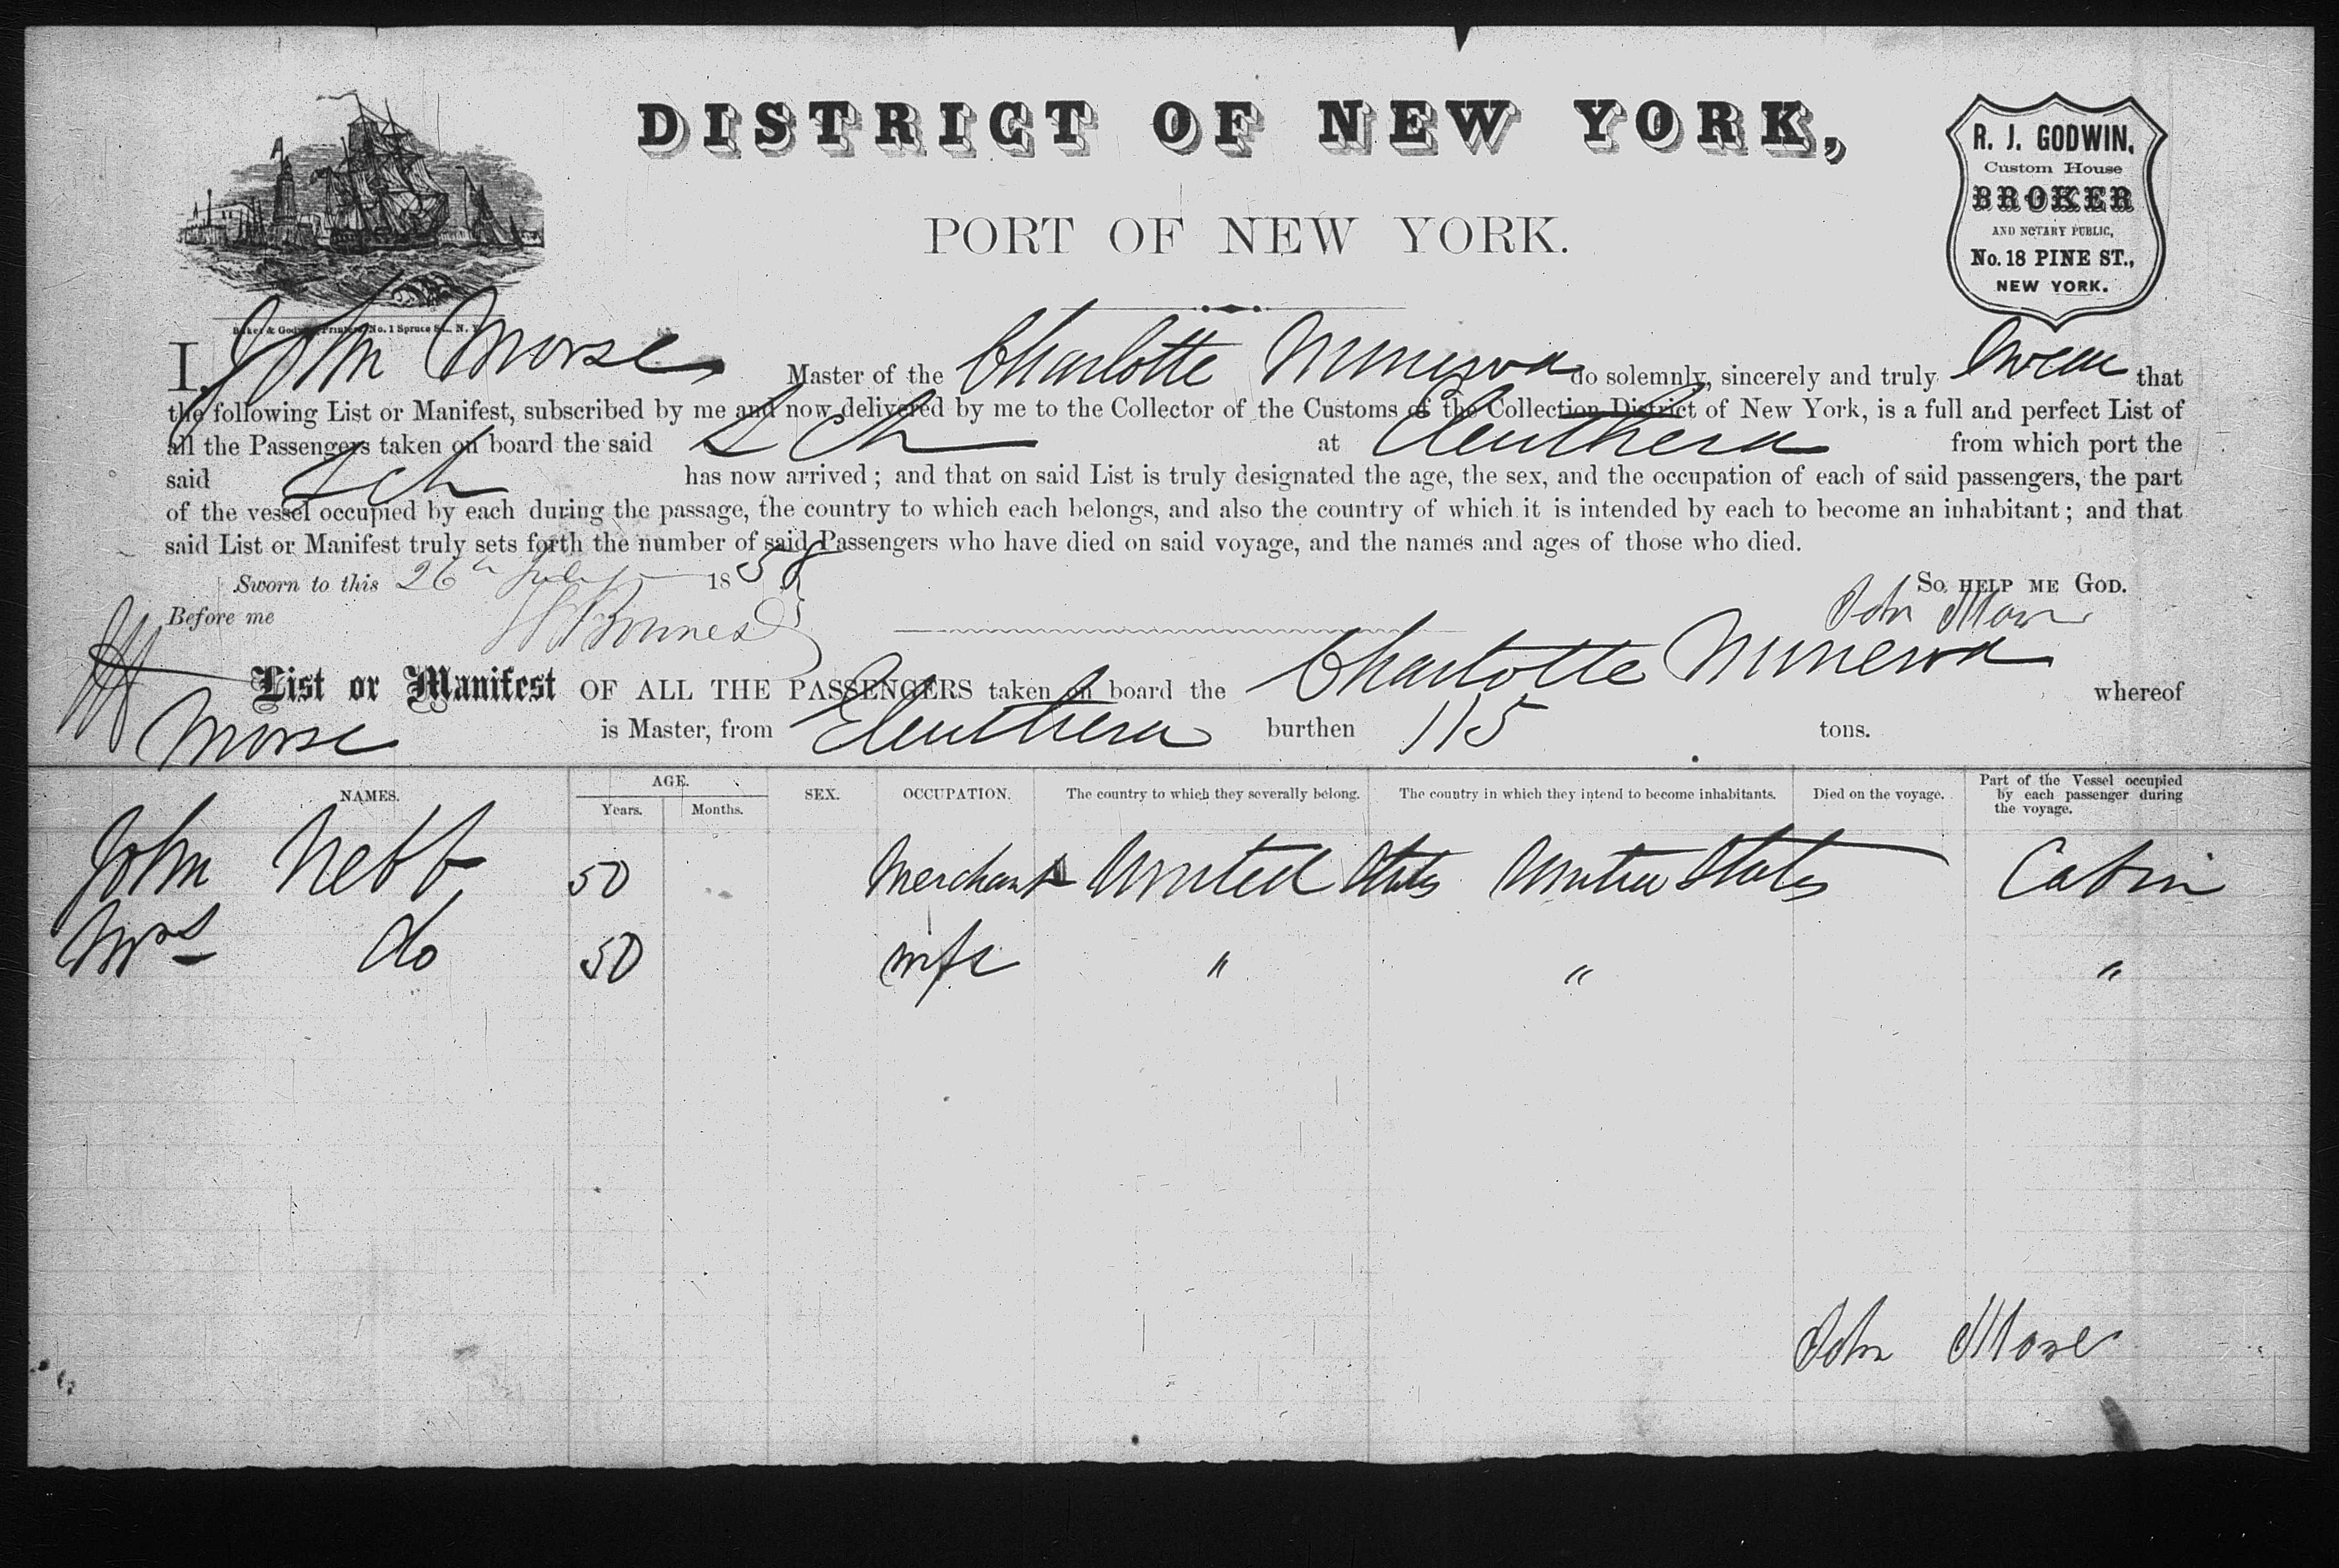 DISTRICT OF NEW YORK,
PORT OF NEW YORK.
R. J. GODWIN,
Custom House
BROKER
AND NOTARY PUBLIC,
No. 18 PINE ST.,
NEW YORK.
Baker & Godwin, Printers, No. 1 Spruce St., N. Y.
I, John Morse Master of the Charlotte Minerva do solemnly, sincerely and truly swear that
the following List or Manifest, subscribed by me and now delivered by me to the Collector of the Customs of the Collection District of New York, is a full and perfect List of
all the Passengers taken on board the said Sch at Eleuthera from which port the
said Sch has now arrived; and that on said List is truly designated the age, the sex, and the occupation of each of said passengers, the part
of the vessel occupied by each during the passage, the country to which each belongs, and also the country of which it is intended by each to become an inhabitant; and that
said List or Manifest truly sets forth the number of said Passengers who have died on said voyage, and the names and ages of those who died.
Sworn to this 26th July 1858 So HELP ME GOD.
Before me John Morse
List or Manifest OF ALL THE PASSENGERS taken on board the Charlotte Minerva whereof
Morse is Master, from Eleuthera burthen 115 tons.
NAMES. AGE. Years. Months. SEX. OCCUPATION. The country to which they severally belong. The country in which they intend to become inhabitants. Died on the voyage. Part of the Vessel occupied by each passenger during the voyage.
John Nebb 50 Merchant United States United States Cabin
Mrs do 50 wife " " "
John Morse